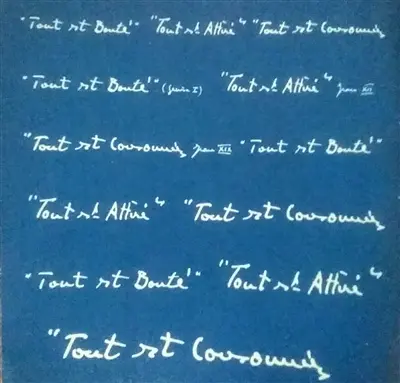 "Tout est Bouté" "Tout est Attiré" "Tout est Couronné
"Tout est Bouté" (juin I) "Tout est Attiré" juin XII
"Tout est Couronné juin XIX "Tout est Bouté"
"Tout est Attiré" "Tout est Couronné
"Tout est Bouté" "Tout est Attiré"
"Tout est Couronné